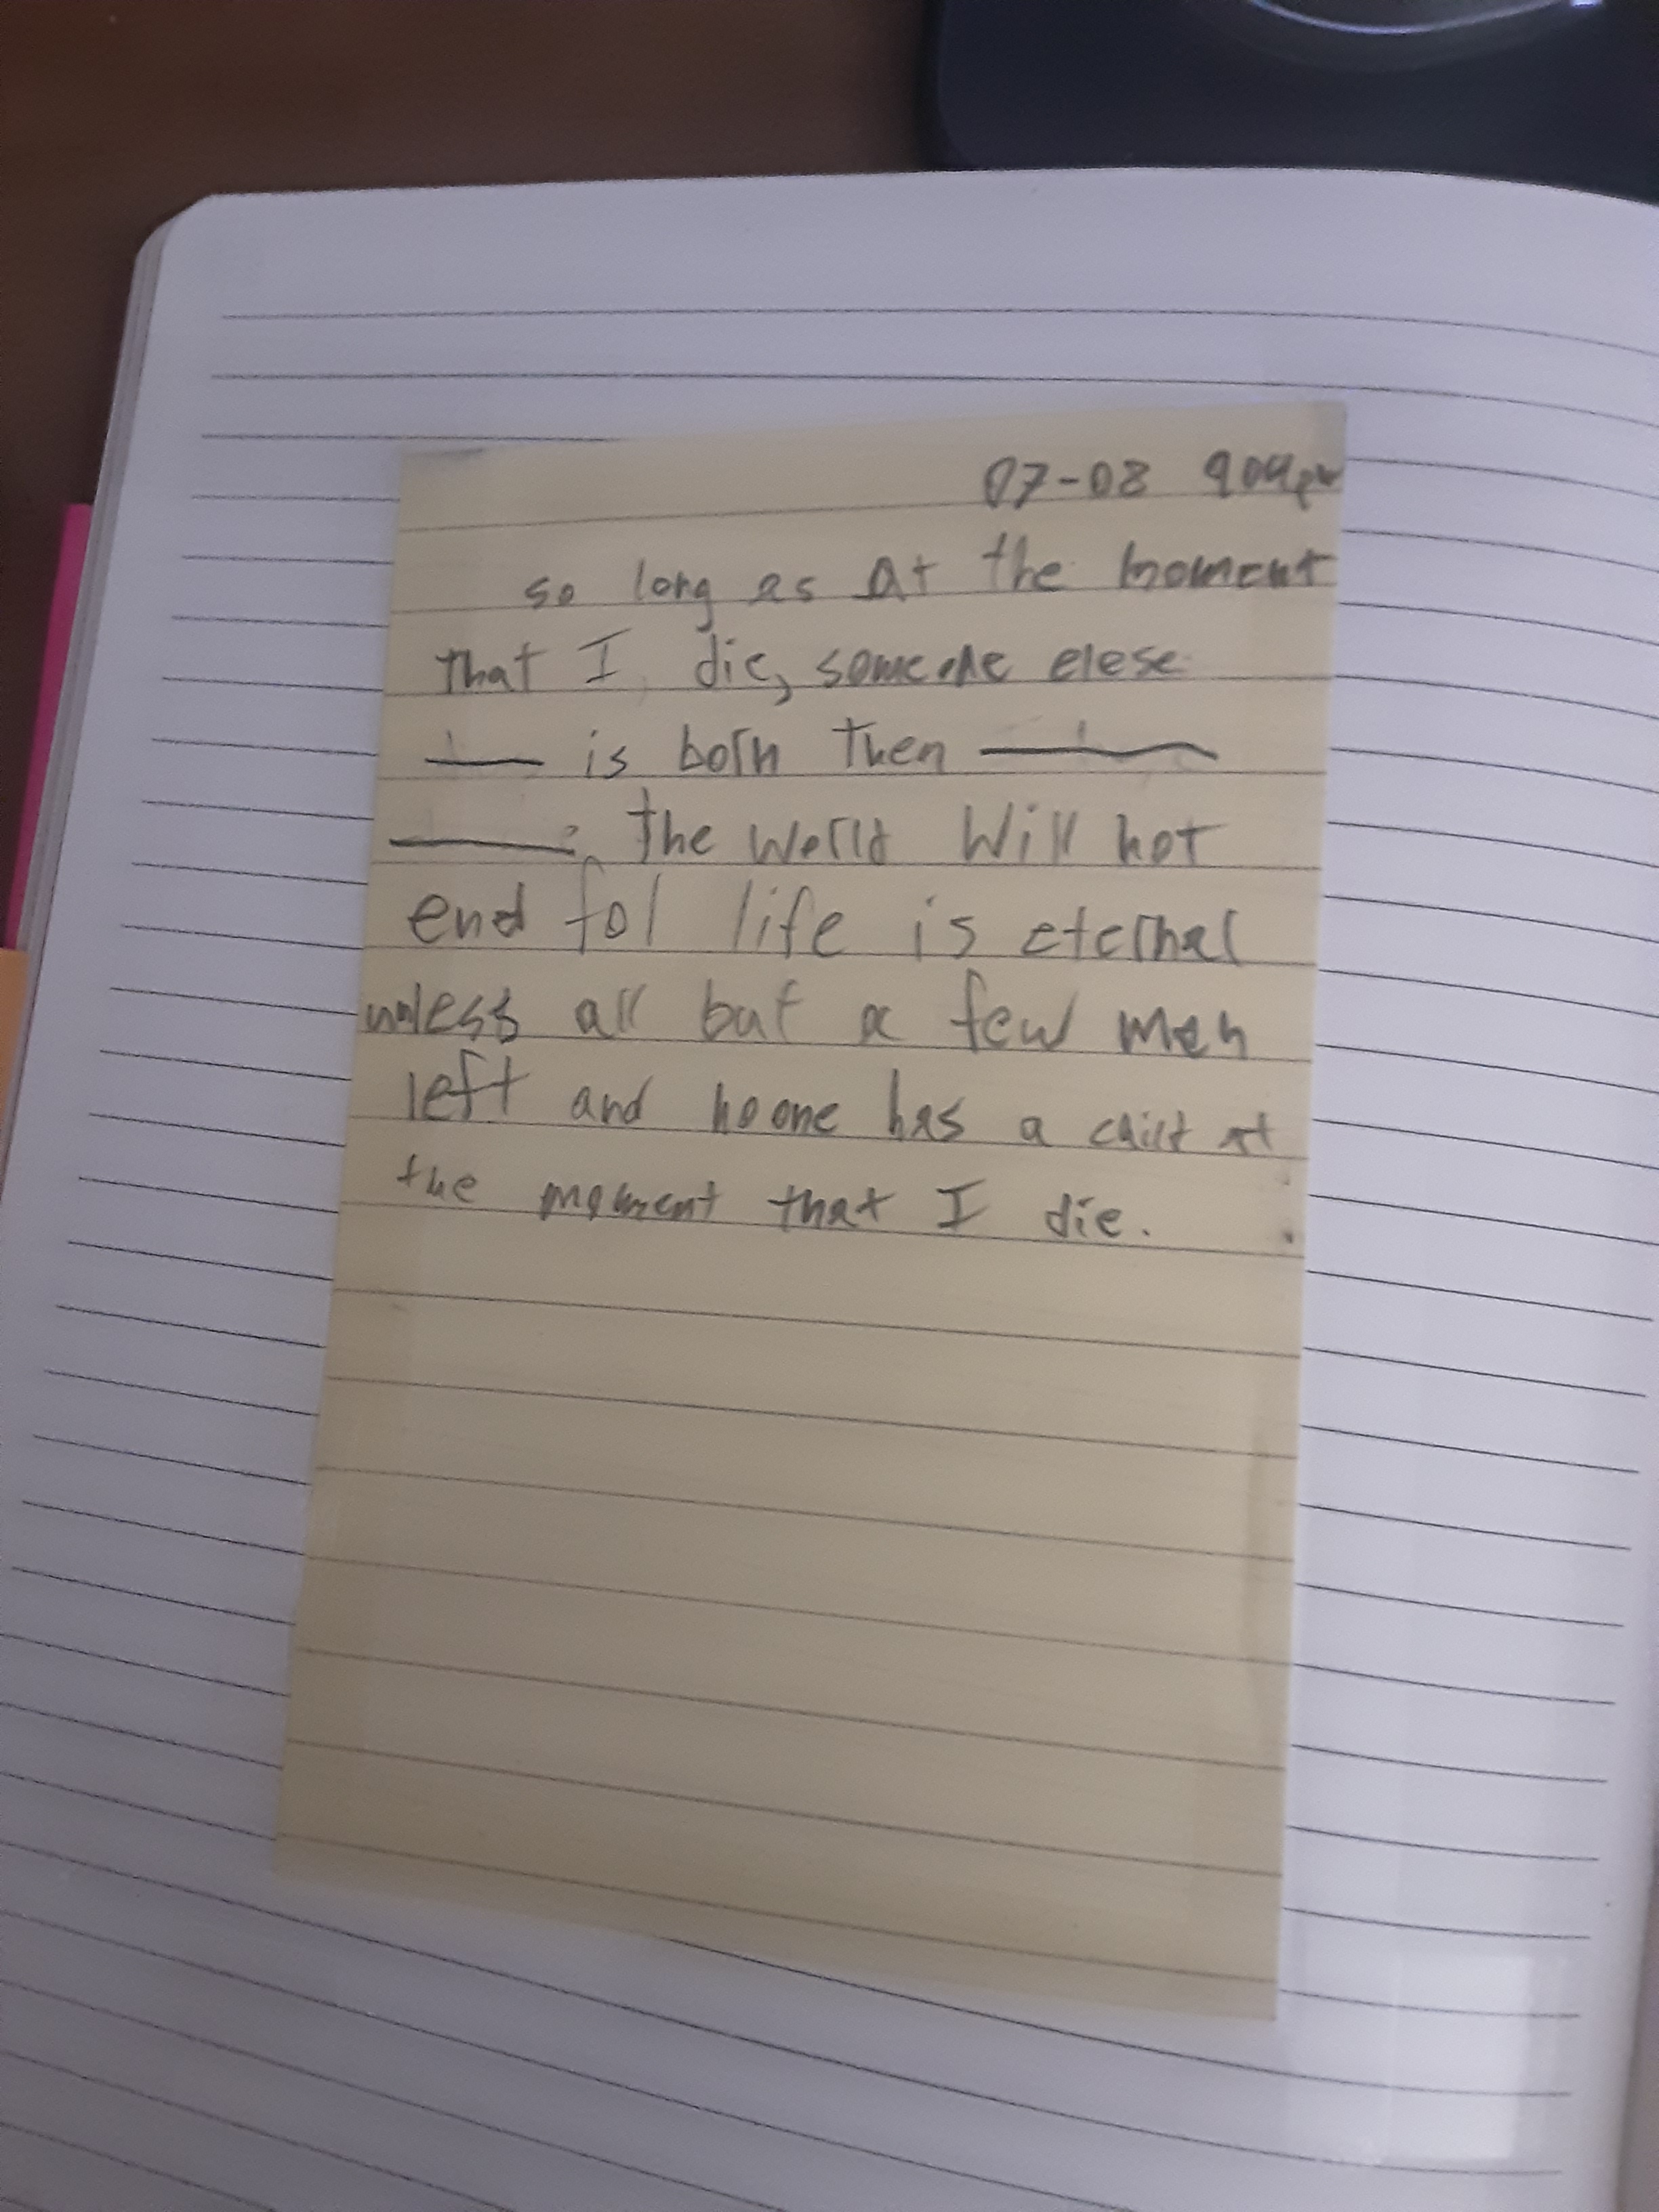 07-08 9:04pm
so long as At the moment
that I die, someone elese
is born then
the world will not
end for life is eternal
unless all but a few men
left and no one has a child at
the moment that I die.